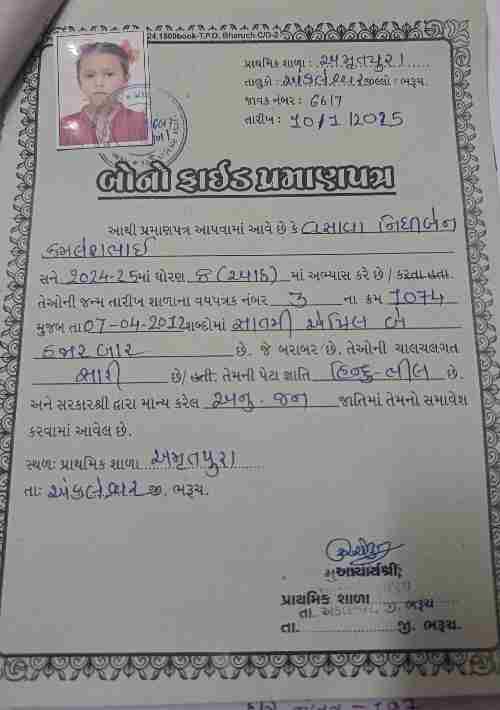 24.1500book-T.P.D. Bharuch C/D-2
પ્રાથમિક શાળા : અમૃતપુરા
તાલુકો : અંકલેશ્વર જીલ્લો : ભરૂચ.
જાવક નંબર : 6617
તારીખ : 10/1/2025
બોનોફાઈડ પ્રમાણપત્ર
આથી પ્રમાણપત્ર આપવામાં આવે છે કે વસાવા નિધીબેન
કમલેશભાઈ
સને 2024-25માં ધોરણ ૮ (આઠ) માં અભ્યાસ કરે છે / કરતા હતા.
તેઓની જન્મ તારીખ શાળાના વયપત્રક નંબર 3 ના ક્રમ 1074
મુજબ તા 07-04-2012 શબ્દોમાં સાતમી એપ્રિલ બે
હજાર બાર છે. જે બરાબર છે. તેઓની ચાલચલગત
સારી છે/ હતી. તેમની પેટા જ્ઞાતિ હિન્દુ-ભીલ છે.
અને સરકારશ્રી દ્વારા માન્ય કરેલ અનુ-જન જાતિમાં તેમનો સમાવેશ
કરવામાં આવેલ છે.
સ્થળ: પ્રાથમિક શાળા અમૃતપુરા
તા: અંકલેશ્વર જી. ભરૂચ.
મુ આચાર્યશ્રી,
પ્રાથમિક શાળા
તા. જી. ભરૂચ
તા. જી. ભરૂચ.